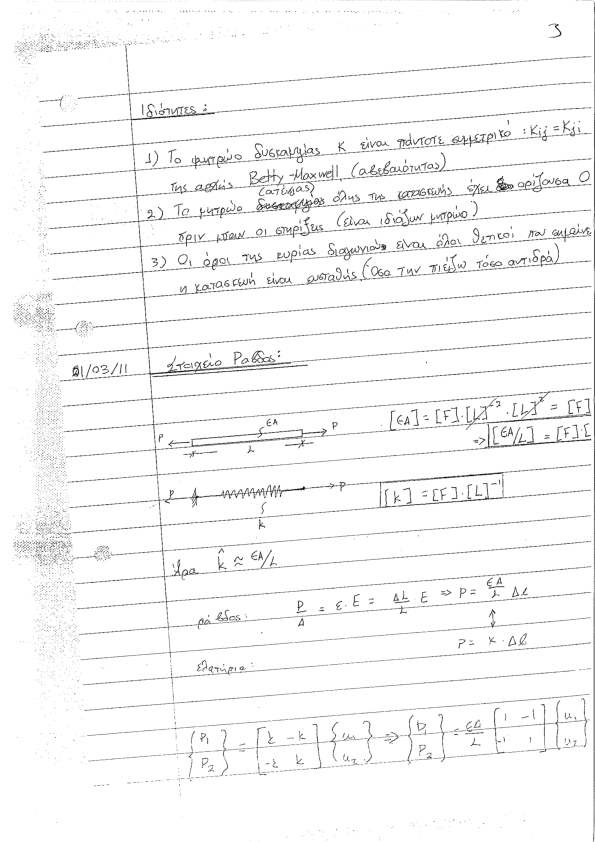 3
Ιδιότητες :
1) Το μητρώο δυσκαμψίας K είναι πάντοτε συμμετρικό : Kij = Kji
της αρχής Betty-Maxwell (αβεβαιότητας)
(ατένειας)
2) Το μητρώο όλης της κατασκευής έχει ορίζουσα 0
πριν μπουν οι στηρίξεις (είναι ιδιάζων μητρώο)
3) Οι όροι της κυρίας διαγωνίου είναι όλοι θετικοί που σημαίνει
η κατασκευή είναι ευσταθής (Όσο την πιέζω τόσο αντιδρά)
01/03/11 Στοιχείο Ράβδος:
P EA P [EA] = [F]·[L]⁻²·[L]² = [F]
L => [EA/L] = [F]·[
P P [k] = [F]·[L]⁻¹
k
Άρα k̂ ≈ EA/L
ράβδος: P/A = ε·E = ΔL/L E => P = EA/L Δl
↕
P = k·Δl
ελατήριο:
{P₁ P₂} = [k -k -k k] {u₁ u₂} => {P₁ P₂} = EA/L [1 -1 -1 1] {u₁ u₂}